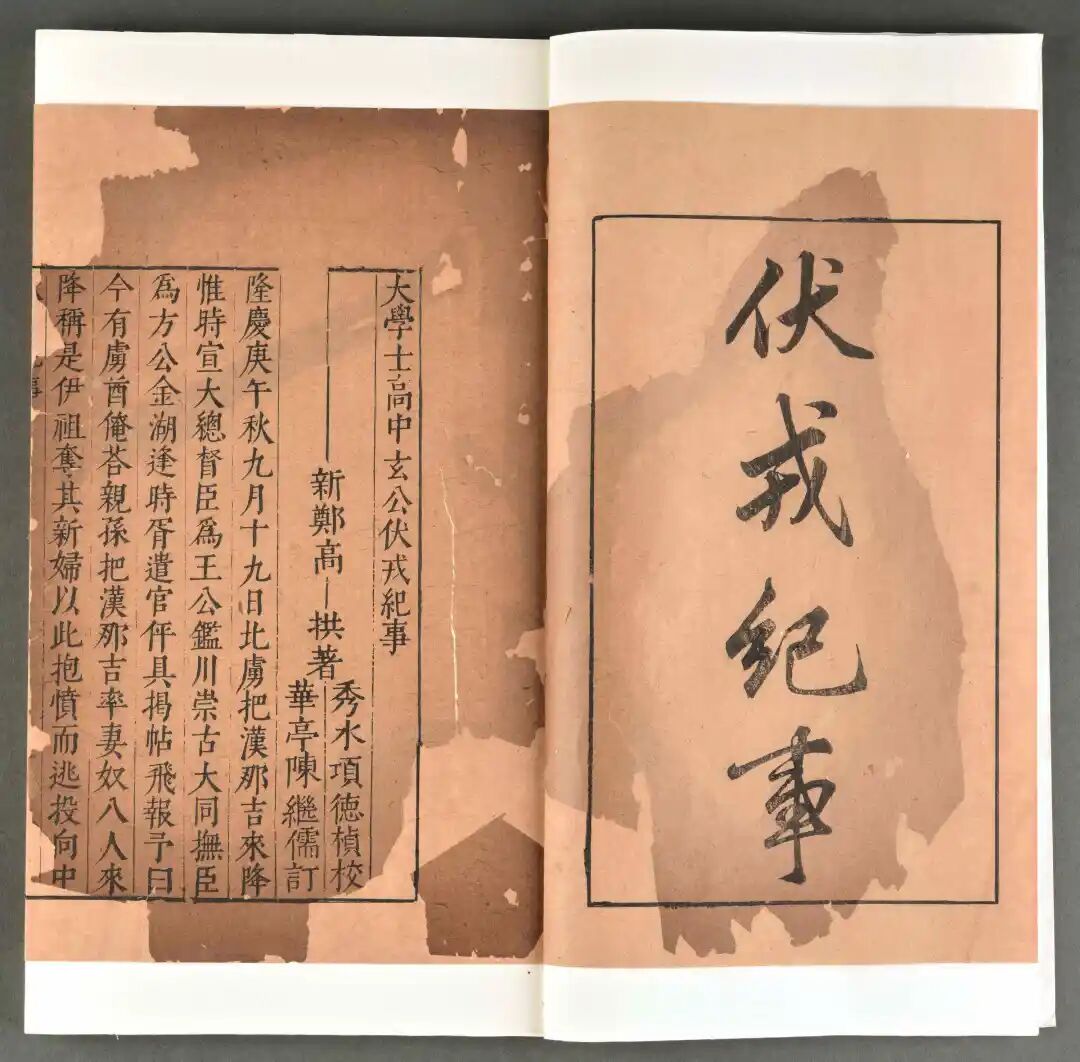 伏戎紀事
大學士高中玄公伏戎紀事
新鄭高拱著
秀水項德楨校
華亭陳繼儒訂
隆慶庚午秋九月十九日北虜把漢那吉來降
惟時宣大總督臣爲王公鑑川崇古大同撫臣
爲方公金湖逢時胥遣官伻具揭帖飛報予曰
今有虜酋俺荅親孫把漢那吉率妻奴八人來
降稱是伊祖奪其新婦以此抱憤而逃投向中